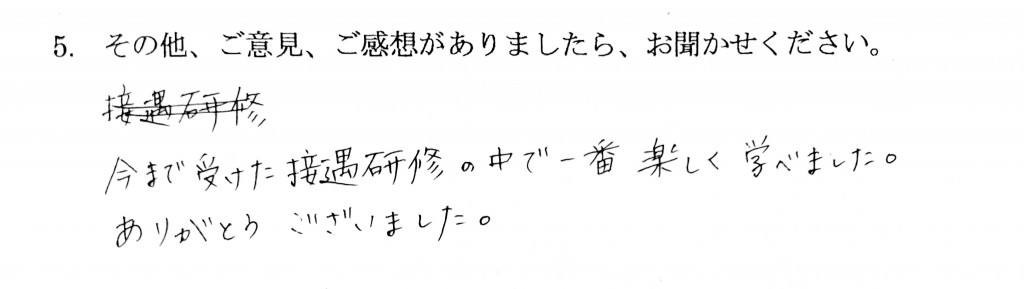 5. その他、ご意見、ご感想がありましたら、お聞かせください。
接遇研修
今まで受けた接遇研修の中で一番楽しく学べました。
ありがとうございました。